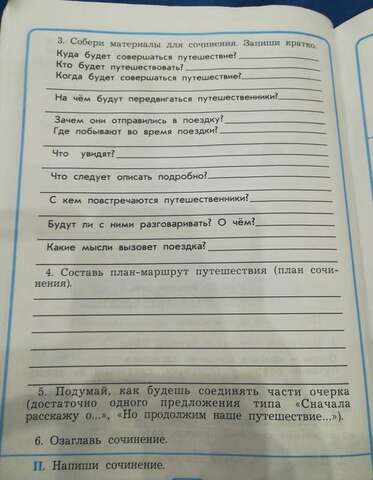 3. Собери материалы для сочинения. Запиши кратко.
Куда будет совершаться путешествие?
Кто будет путешествовать?
Когда будет совершаться путешествие?
На чём будут передвигаться путешественники?
Зачем они отправились в поездку?
Где побывают во время поездки?
Что увидят?
Что следует описать подробно?
С кем повстречаются путешественники?
Будут ли с ними разговаривать? О чём?
Какие мысли вызовет поездка?
4. Составь план-маршрут путешествия (план сочи-
нения).
5. Подумай, как будешь соединять части очерка
(достаточно одного предложения типа «Сначала
расскажу о...», «Но продолжим наше путешествие...»).
6. Озаглавь сочинение.
II. Напиши сочинение.